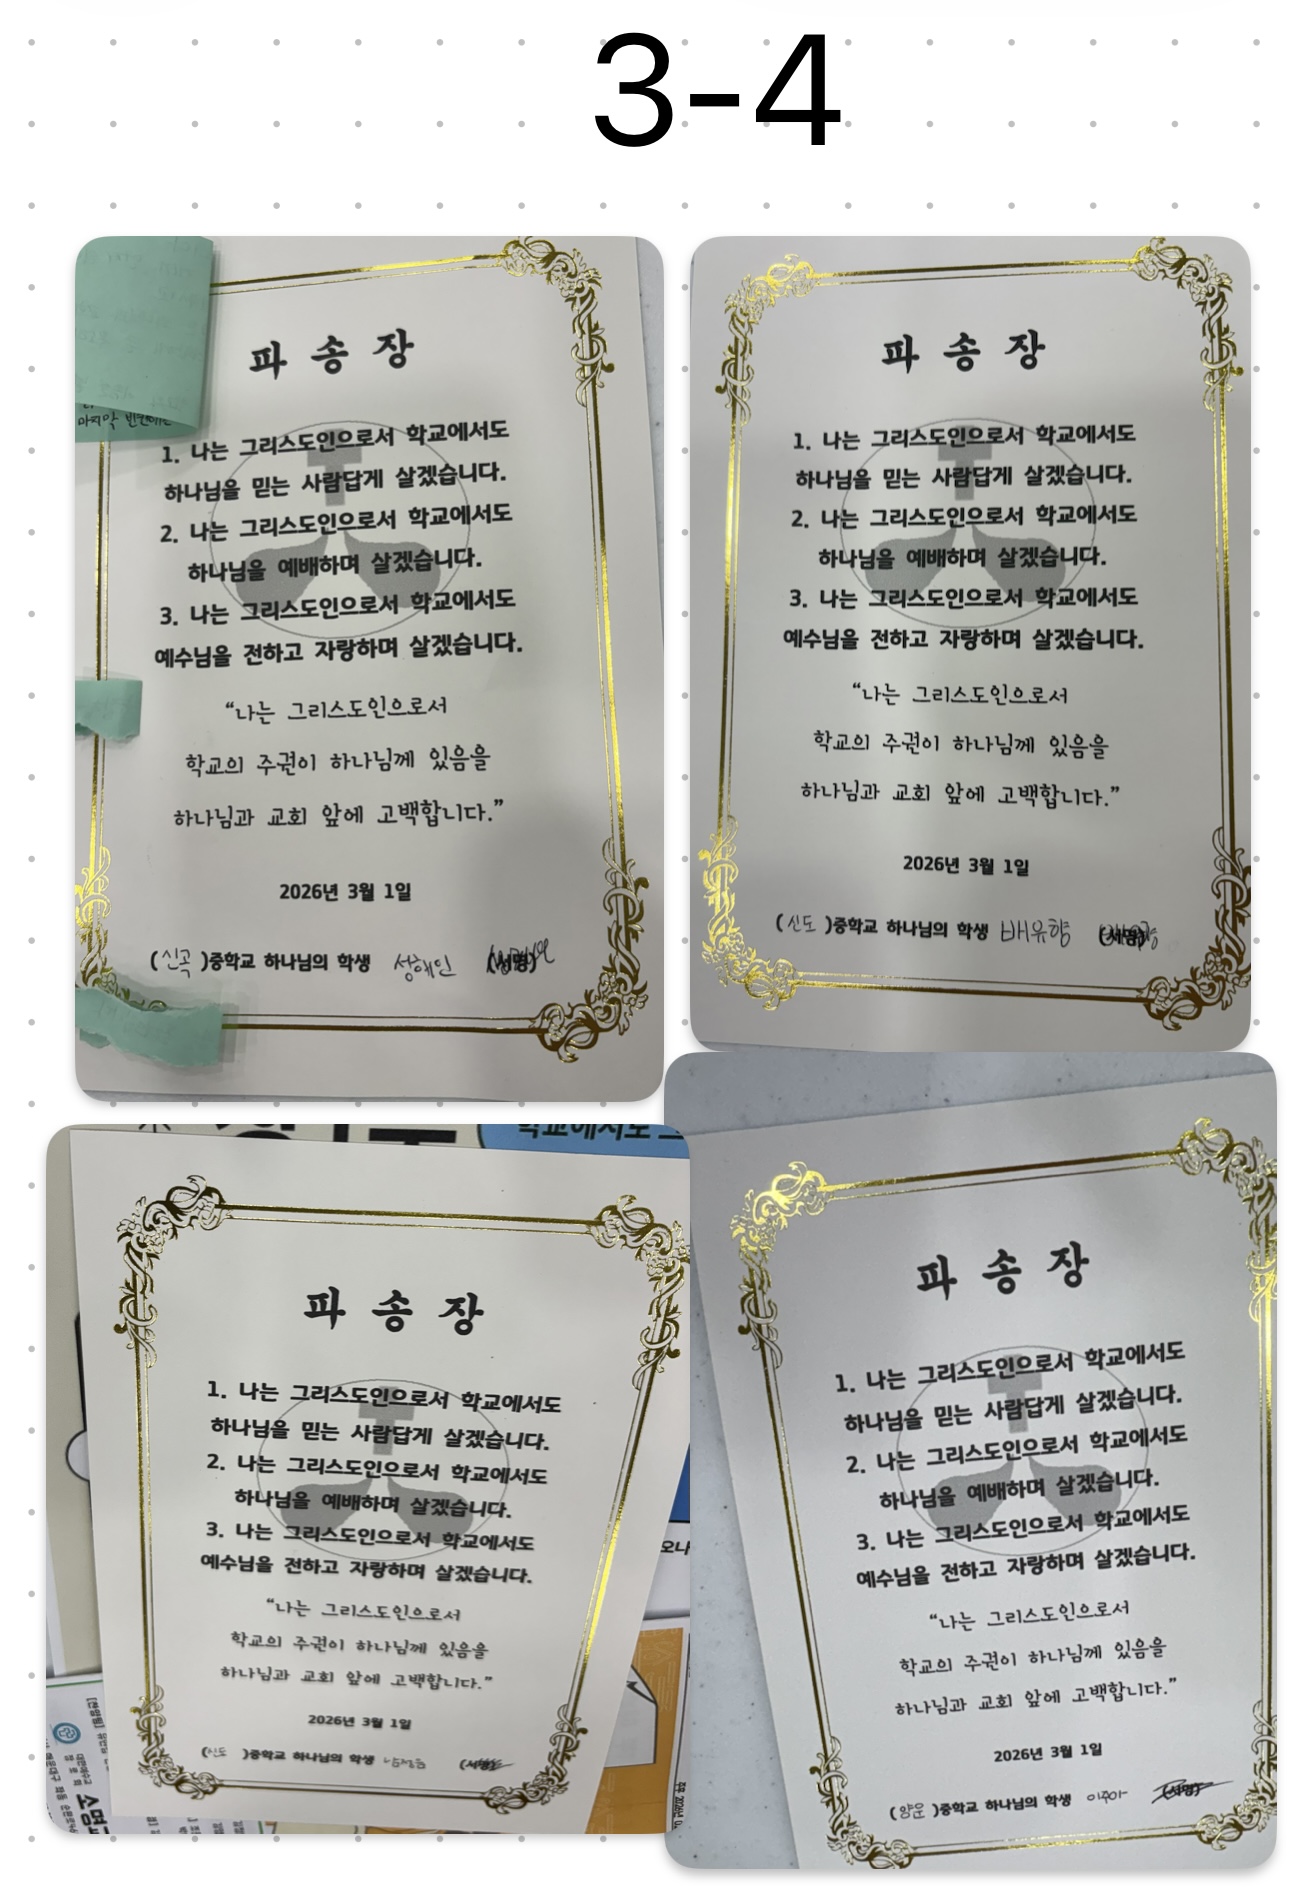 3-4
마지막
파 송 장
1. 나는 그리스도인으로서 학교에서도
하나님을 믿는 사람답게 살겠습니다.
2. 나는 그리스도인으로서 학교에서도
하나님을 예배하며 살겠습니다.
3. 나는 그리스도인으로서 학교에서도
예수님을 전하고 자랑하며 살겠습니다.
“나는 그리스도인으로서
학교의 주권이 하나님께 있음을
하나님과 교회 앞에 고백합니다.”
2026년 3월 1일
(신곡)중학교 하나님의 학생 성해인 (서명)
파 송 장
1. 나는 그리스도인으로서 학교에서도
하나님을 믿는 사람답게 살겠습니다.
2. 나는 그리스도인으로서 학교에서도
하나님을 예배하며 살겠습니다.
3. 나는 그리스도인으로서 학교에서도
예수님을 전하고 자랑하며 살겠습니다.
“나는 그리스도인으로서
학교의 주권이 하나님께 있음을
하나님과 교회 앞에 고백합니다.”
2026년 3월 1일
(신도)중학교 하나님의 학생 배유향 (서명)
학교에서도
파 송 장
1. 나는 그리스도인으로서 학교에서도
하나님을 믿는 사람답게 살겠습니다.
2. 나는 그리스도인으로서 학교에서도
하나님을 예배하며 살겠습니다.
3. 나는 그리스도인으로서 학교에서도
예수님을 전하고 자랑하며 살겠습니다.
“나는 그리스도인으로서
학교의 주권이 하나님께 있음을
하나님과 교회 앞에 고백합니다.”
2026년 3월 1일
(신도)중학교 하나님의 학생 (서명)
파 송 장
1. 나는 그리스도인으로서 학교에서도
하나님을 믿는 사람답게 살겠습니다.
2. 나는 그리스도인으로서 학교에서도
하나님을 예배하며 살겠습니다.
3. 나는 그리스도인으로서 학교에서도
예수님을 전하고 자랑하며 살겠습니다.
“나는 그리스도인으로서
학교의 주권이 하나님께 있음을
하나님과 교회 앞에 고백합니다.”
2026년 3월 1일
(양운)중학교 하나님의 학생 이주아 (서명)